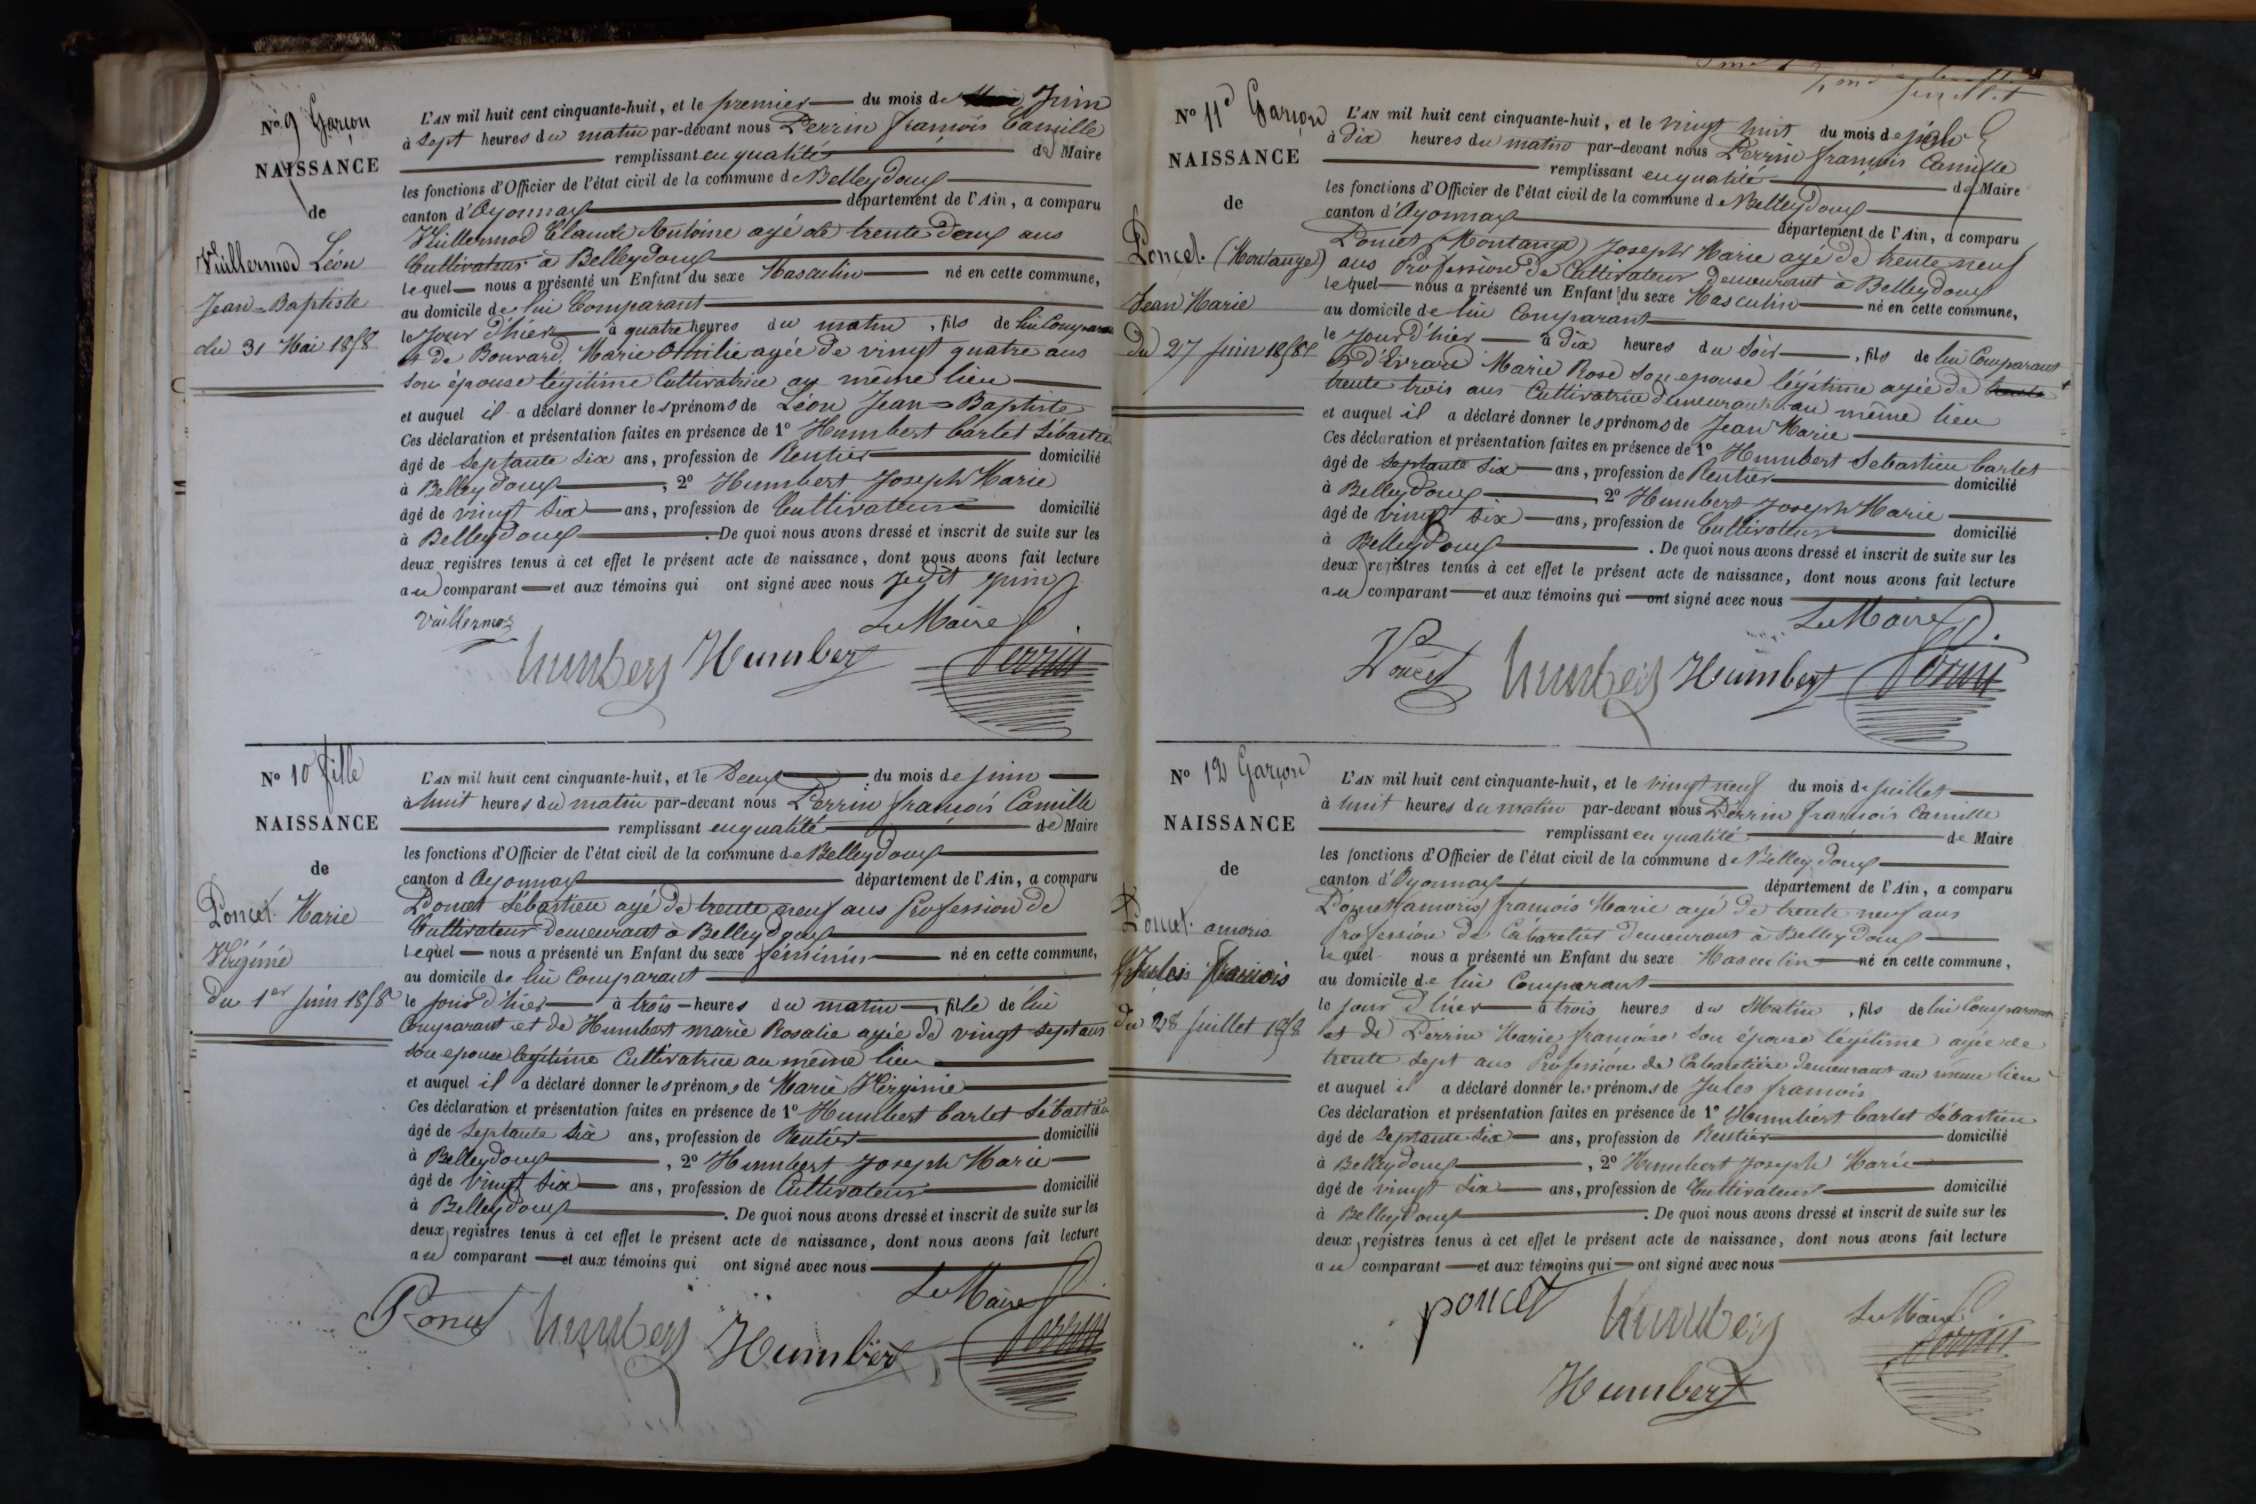 No 9 Garçon
NAISSANCE
de
Vuillermod Léon
Jean-Baptiste
du 31 Mai 1858
L'AN mil huit cent cinquante-huit, et le premier du mois de Juin
à Sept heures du matin par-devant nous Perrin françois Camille
remplissant en qualité de Maire
les fonctions d'Officier de l'état civil de la commune de Belleydoux
canton d'Oyonnax département de l'Ain, a comparu
Vuillermod Claude Antoine agé de trente deux ans
Cultivateur à Belleydoux
lequel nous a présenté un Enfant du sexe Masculin né en cette commune,
au domicile de lui Comparant
le Jour d'hier à quatre heures du matin, fils de lui Comparant
et de Bouvard, Marie agée de vingt quatre ans
son épouse légitime Cultivatrice au même lieu
et auquel il a déclaré donner les prénoms de Léon Jean-Baptiste
Ces déclaration et présentation faites en présence de 1° Humbert Carlet Sébastien
âgé de Septante Six ans, profession de Rentier domicilié
à Belleydoux, 2° Humbert Joseph Marie
âgé de vingt Six ans, profession de Cultivateur domicilié
à Belleydoux. De quoi nous avons dressé et inscrit de suite sur les
deux registres tenus à cet effet le présent acte de naissance, dont nous avons fait lecture
au comparant et aux témoins qui ont signé avec nous Juin
Vuillermoz
Le Maire
Humbert Humbert Perrin
No 10 fille
NAISSANCE
de
Poncet Marie
Virginie
Du 1er Juin 1858
L'AN mil huit cent cinquante-huit, et le Deux du mois de Juin
à huit heures du matin par-devant nous Perrin françois Camille
remplissant en qualité de Maire
les fonctions d'Officier de l'état civil de la commune de Belleydoux
canton d'Oyonnax département de l'Ain, a comparu
Poncet Sébastien agé de trente neuf ans Profession de
Cultivateur demeurant à Belleydoux
lequel nous a présenté un Enfant du sexe féminin né en cette commune,
au domicile de lui Comparant
le jour d'hier à trois heures du matin, fille de lui
Comparant et de Humbert marie Rosalie agée de vingt sept ans
son epouse légitime Cultivatrice au même lieu
et auquel il a déclaré donner les prénoms de Marie Virginie
Ces déclaration et présentation faites en présence de 1° Humbert Carlet Sébastien
âgé de Septante Six ans, profession de Rentier domicilié
à Belleydoux, 2° Humbert Joseph Marie
âgé de Vingt Six ans, profession de Cultivateur domicilié
à Belleydoux. De quoi nous avons dressé et inscrit de suite sur les
deux registres tenus à cet effet le présent acte de naissance, dont nous avons fait lecture
au comparant et aux témoins qui ont signé avec nous
Le Maire
Poncet Humbert Humbert Perrin
feuillet
No 11e Garçon
NAISSANCE
de
Poncet (Montange)
Jean Marie
Du 27 Juin 1858
L'AN mil huit cent cinquante-huit, et le vingt huit du mois de
à Dix heures du matin par-devant nous Perrin françois Camille
remplissant en qualité de Maire
les fonctions d'Officier de l'état civil de la commune de Belleydoux
canton d'Oyonnax département de l'Ain, a comparu
Poncet (Montange) Joseph Marie agé de trente neuf
ans Profession de Cultivateur demeurant à Belleydoux
lequel nous a présenté un Enfant du sexe Masculin né en cette commune,
au domicile de lui Comparant
le Jour d'hier à dix heures du Soir, fils de lui Comparant
et d'Evrard Marie Rose son epouse légitime agée de trente
trente trois ans Cultivatrice demeurant au même lieu
et auquel il a déclaré donner les prénoms de Jean Marie
Ces déclaration et présentation faites en présence de 1° Humbert Sebastien Carlet
âgé de Septante Six ans, profession de Rentier domicilié
à Belleydoux, 2° Humbert Joseph Marie
âgé de Vingt Six ans, profession de Cultivateur domicilié
à Belleydoux. De quoi nous avons dressé et inscrit de suite sur les
deux registres tenus à cet effet le présent acte de naissance, dont nous avons fait lecture
au comparant et aux témoins qui ont signé avec nous
Le Maire
Poncet Humbert Humbert Perrin
No 12 Garçon
NAISSANCE
de
Poncet amoris
Jules françois
du 28 Juillet 1858
L'AN mil huit cent cinquante-huit, et le vingt neuf du mois de Juillet
à huit heures du matin par-devant nous Perrin françois Camille
remplissant en qualité de Maire
les fonctions d'Officier de l'état civil de la commune de Belleydoux
canton d'Oyonnax département de l'Ain, a comparu
Poncet (amoris) françois Marie agé de trente neuf ans
Profession de Cabaretier demeurant à Belleydoux
lequel nous a présenté un Enfant du sexe Masculin né en cette commune,
au domicile de lui Comparant
le jour d'hier à trois heures du Matin, fils de lui Comparant
et de Perrin Marie françoise son épouse légitime agée de
trente sept ans Profession de Cabaretière demeurant au même lieu
et auquel il a déclaré donner les prénoms de Jules françois
Ces déclaration et présentation faites en présence de 1° Humbert Carlet Sébastien
âgé de Septante Six ans, profession de Rentier domicilié
à Belleydoux, 2° Humbert Joseph Marie
âgé de vingt Six ans, profession de Cultivateur domicilié
à Belleydoux. De quoi nous avons dressé et inscrit de suite sur les
deux registres tenus à cet effet le présent acte de naissance, dont nous avons fait lecture
au comparant et aux témoins qui ont signé avec nous
poncet Humbert Le Maire
Perrin
Humbert